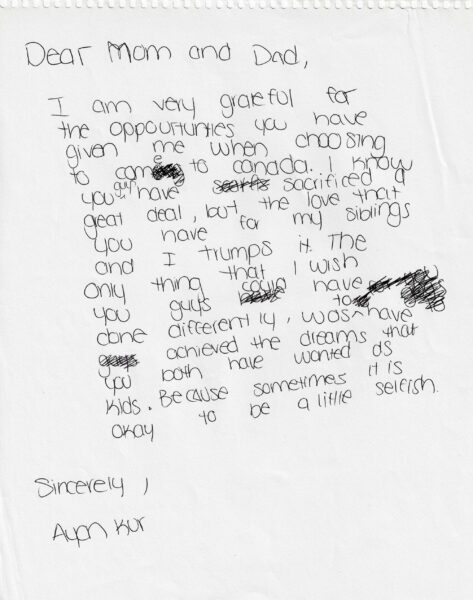 Dear Mom and Dad,
I am very grateful for
the oppourtunties you have
given me when choosing
to come to canada. I know
you guys have sacrificed a
great deal, but the love that
you have for my siblings
and I trumps it. The
only thing that I wish
you guys could have
done differently, was to have
achieved the dreams that
you both have wanted as
kids. Because sometimes it is
okay to be a little selfish.
Sincerely,
Ayan Kur